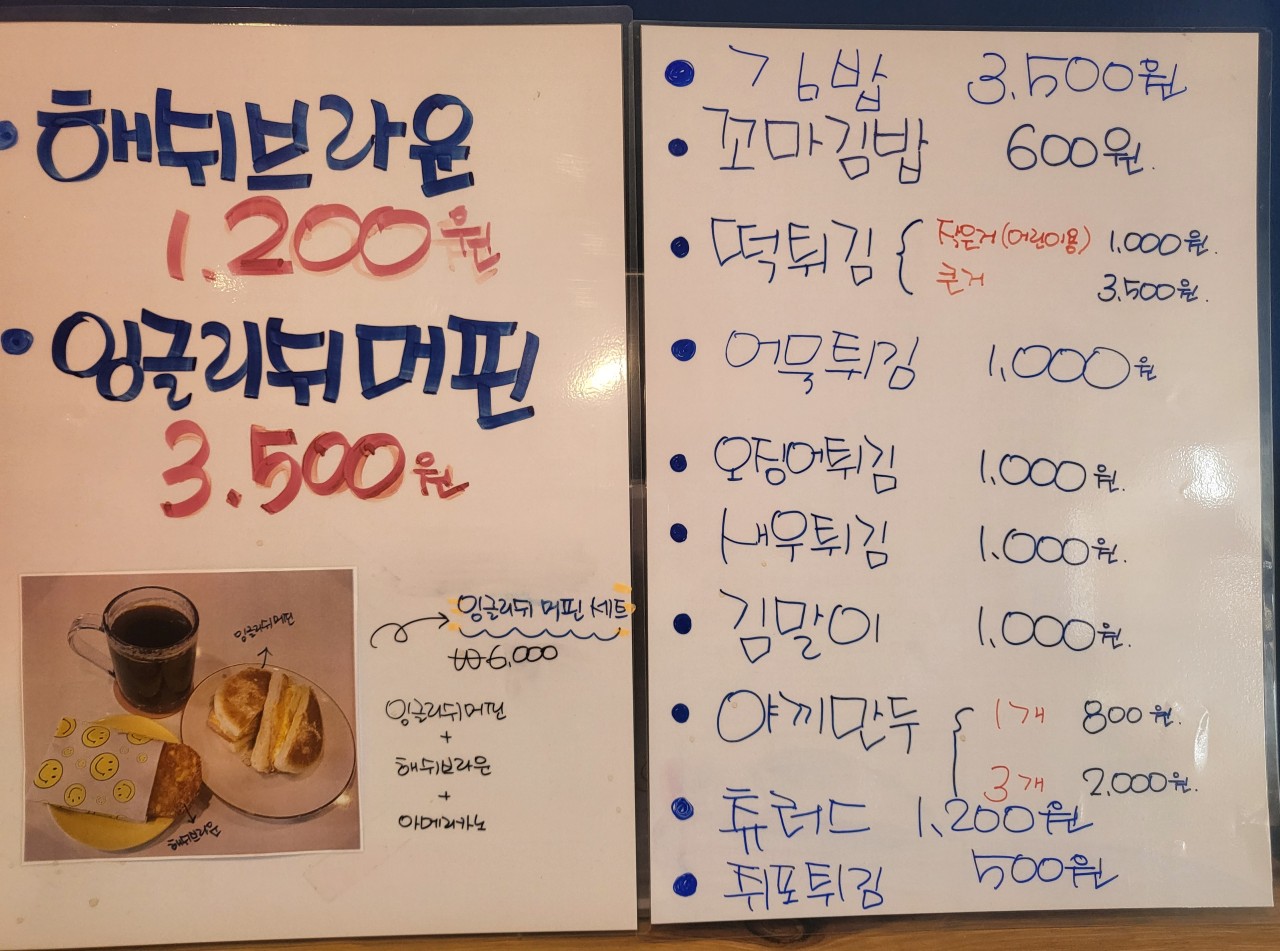 • 해쉬브라운
1.200원
• 잉글리쉬 머핀
3.500원
잉글리쉬 머핀
해쉬브라운
잉글리쉬 머핀 세트
₩6,000
잉글리쉬 머핀
+
해쉬브라운
+
아메리카노
• 김밥 3.500원
• 꼬마김밥 600원.
• 떡튀김 { 작은거(어린이용) 1.000원.
큰거 3,500원.
• 어묵튀김 1,000원
• 오징어튀김 1.000원.
• 새우튀김 1.000원.
• 김말이 1.000원.
• 야끼만두 { 1개 800원.
3개 2,000원.
• 츄러드 1,200원
• 쥐포튀김 500원